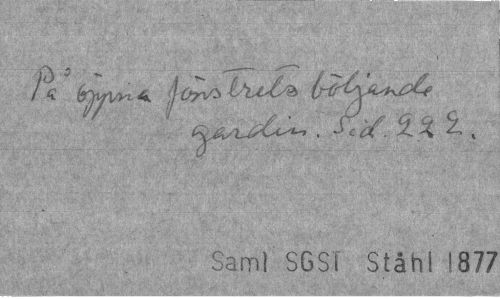 På öppna fönstrets böljande
gardin. Sid. 222.
Saml SGST Ståhl 1877